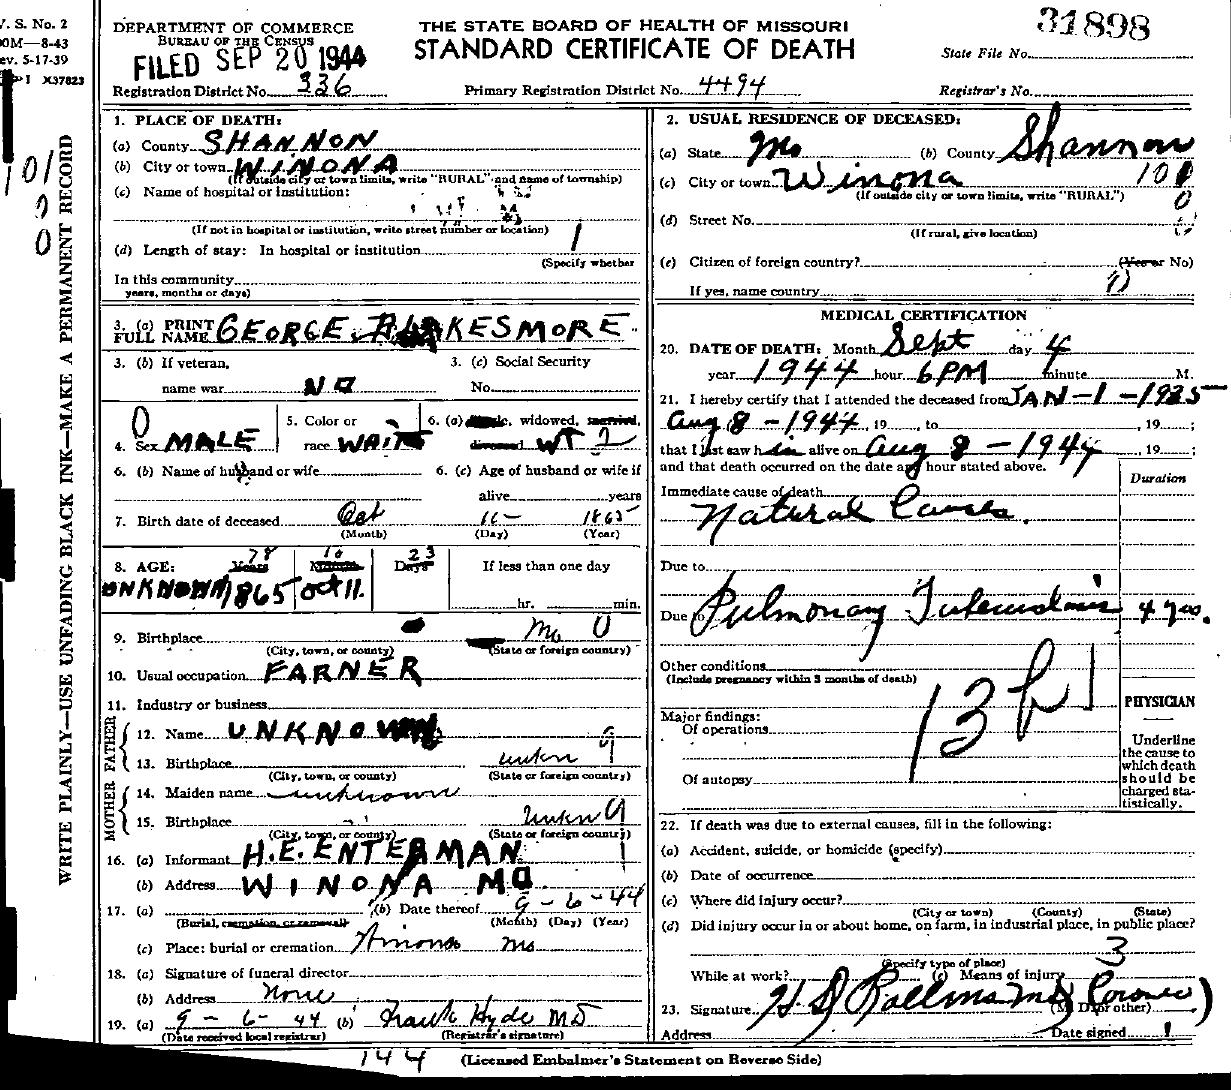 V. S. No. 2
00M—8-43
ev. 5-17-39
I X37823
DEPARTMENT OF COMMERCE
BUREAU OF THE CENSUS
FILED SEP 20 1944
Registration District No. 336
THE STATE BOARD OF HEALTH OF MISSOURI
STANDARD CERTIFICATE OF DEATH
Primary Registration District No. 4494
31898
State File No.
Registrar's No.
WRITE PLAINLY—USE UNFADING BLACK INK—MAKE A PERMANENT RECORD
1. PLACE OF DEATH:
(a) County SHANNON
(b) City or town WINONA
(If outside city or town limits, write "RURAL" and name of township)
(c) Name of hospital or institution:
(If not in hospital or institution, write street number or location)
(d) Length of stay: In hospital or institution
(Specify whether
In this community
years, months or days)
3. (a) PRINT FULL NAME GEORGE KESMORE
3. (b) If veteran, name war NO
3. (c) Social Security No.
4. Sex MALE
5. Color or race WAITE
6. (a) Single, widowed, married, divorced WI 2
6. (b) Name of husband or wife
6. (c) Age of husband or wife if alive years
7. Birth date of deceased Oct 11 1865
(Month) (Day) (Year)
8. AGE: Years 78 Months 10 Days 23
If less than one day
hr. min.
UNKNOWN 1865 Oct 11.
9. Birthplace Mo
(City, town, or county) (State or foreign country)
10. Usual occupation FARNER
11. Industry or business
FATHER
12. Name UNKNOWN
13. Birthplace unkn 9
(City, town, or county) (State or foreign country)
MOTHER
14. Maiden name unknown
15. Birthplace unkn 9
(City, town, or county) (State or foreign country)
16. (a) Informant H.E. ENTERMAN
(b) Address WINONA MO.
17. (a) (b) Date thereof 9-6-44
(Burial, cremation, or removal) (Month) (Day) (Year)
(c) Place: burial or cremation Winona Mo
18. (a) Signature of funeral director
(b) Address None
19. (a) 9-6-44 (b) Frank Hyde MD
(Date received local registrar) (Registrar's signature)
2. USUAL RESIDENCE OF DECEASED:
(a) State Mo (b) County Shannon
(c) City or town Winona
(If outside city or town limits, write "RURAL")
(d) Street No.
(If rural, give location)
(e) Citizen of foreign country? (Yes or No)
If yes, name country
MEDICAL CERTIFICATION
20. DATE OF DEATH: Month Sept day 4
year 1944 hour 6PM minute M.
21. I hereby certify that I attended the deceased from JAN-1-1935
Aug 8-1944, 19 , to , 19 ;
that I last saw him alive on Aug 8-1944, 19 ;
and that death occurred on the date and hour stated above.
Duration
Immediate cause of death
Natural Causes.
Due to
Due to Pulmonary Tuberculosis 4 yrs.
Other conditions
(Include pregnancy within 3 months of death)
Major findings:
Of operations
Of autopsy
13 b
PHYSICIAN
Underline
the cause to
which death
should be
charged sta-
tistically.
22. If death was due to external causes, fill in the following:
(a) Accident, suicide, or homicide (specify)
(b) Date of occurrence
(c) Where did injury occur?
(City or town) (County) (State)
(d) Did injury occur in or about home, on farm, in industrial place, in public place?
3
(Specify type of place)
While at work? (e) Means of injury
23. Signature (M. D. or other) Coroner)
Address Date signed
144 (Licensed Embalmer's Statement on Reverse Side)